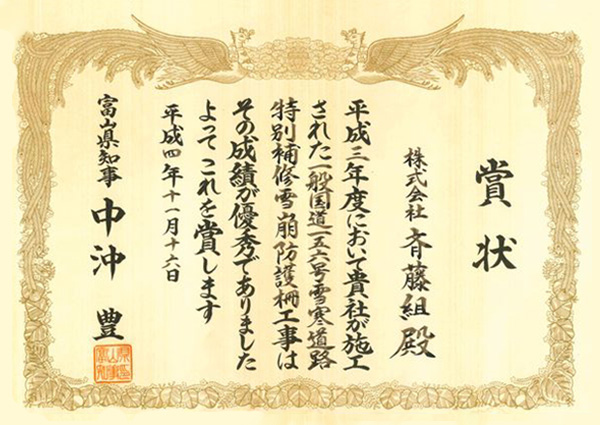 賞状
株式会社 斉藤組殿
平成三年度において貴社が施工
された一般国道一五六号雪寒道路
特別補修雪崩防護柵工事は
その成績が優秀でありました
よってこれを賞します
平成四年十一月十六日
富山県知事 中沖 豊